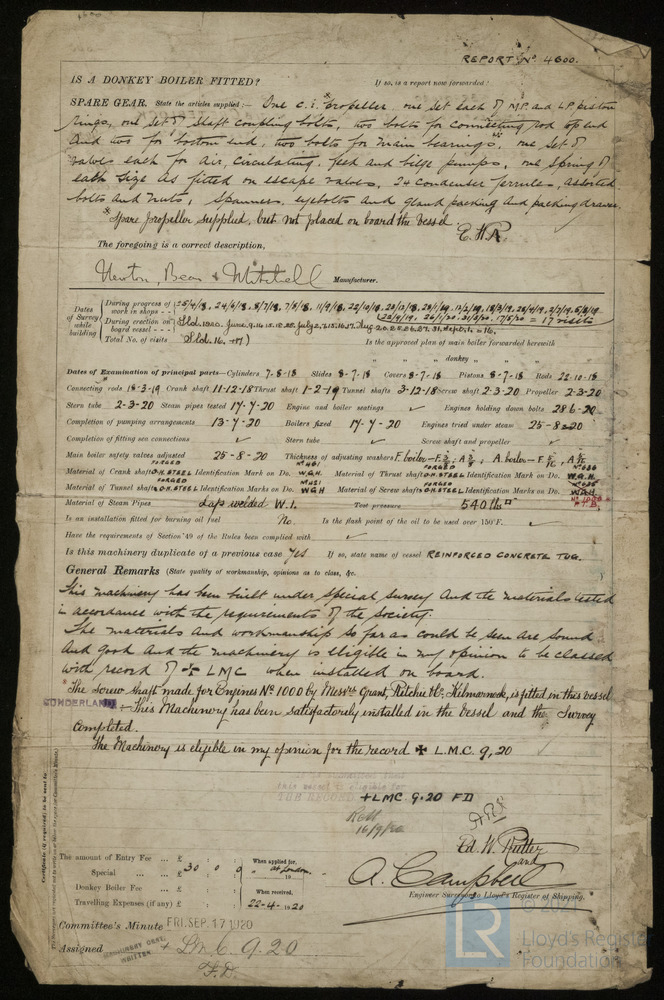 REPORT Nº 4600.
IS A DONKEY BOILER FITTED? If so, is a report now forwarded?
SPARE GEAR. State the articles supplied:— One C.I. propeller, one set each of M.P. and L.P. piston
rings, one set of shaft coupling bolts, two bolts for connecting rod top end
and two for bottom end, two bolts for main bearings, one set of
valves each for air, circulating, feed and bilge pumps, one spring of
each size as fitted on escape valves, 24 condenser ferrules, assorted
bolts and nuts, spanners, eyebolts and gland packing and packing drawer.
*Spare propeller supplied, but not placed on board the vessel.
E.W.R.
The foregoing is a correct description,
Newton, Bean & Mitchell Manufacturer.
Dates of Survey while building
During progress of work in shops - -
During erection on board vessel - - -
Total No. of visits
Is the approved plan of main boiler forwarded herewith
" " " donkey " " "
Dates of Examination of principal parts—Cylinders 7-8-18 Slides 8-7-18 Covers 8-7-18 Pistons 8-7-18 Rods 22-10-18
Connecting rods 18-3-19 Crank shaft 11-12-18 Thrust shaft 1-2-19 Tunnel shafts 3-12-18 Screw shaft 2-3-20 Propeller 2-3-20
Stern tube 2-3-20 Steam pipes tested 17-7-20 Engine and boiler seatings ✓ Engines holding down bolts 28-6-20
Completion of pumping arrangements 13-7-20 Boilers fixed 17-7-20 Engines tried under steam 25-8-20
Completion of fitting sea connections ✓ Stern tube ✓ Screw shaft and propeller ✓
Main boiler safety valves adjusted 25-8-20 Thickness of adjusting washers
Material of Crank shaft FORGED O.H. STEEL Identification Mark on Do. W.G.H. Material of Thrust shaft FORGED O.H. STEEL Identification Mark on Do. W.G.H.
Material of Tunnel shafts FORGED O.H. STEEL Identification Marks on Do. WGH Material of Screw shafts FORGED O.H. STEEL Identification Marks on Do.
Material of Steam Pipes Lap welded W.I. Test pressure 540 lbs □"
Is an installation fitted for burning oil fuel No. Is the flash point of the oil to be used over 150°F. ✓
Have the requirements of Section 49 of the Rules been complied with ✓
Is this machinery duplicate of a previous case Yes If so, state name of vessel REINFORCED CONCRETE TUG.
General Remarks (State quality of workmanship, opinions as to class, &c.
This machinery has been built under special survey and the materials tested
in accordance with the requirements of the Society.
The materials and workmanship so far as could be seen are sound
and good and the machinery is eligible in my opinion to be classed
with record of ✠ LMC when installed on board.
*The Screw shaft made for Engines Nº 1000 by Messrs Grant, Ritchie & Co, Kilmarnock, is fitted in this vessel
SUNDERLAND :- This Machinery has been satisfactorily installed in the vessel and the Survey
completed.
The Machinery is eligible in my opinion for the record ✠ L.M.C. 9,20
this vessel is eligible for
THE RECORD +LMC 9.20 FD
16/9/20
The amount of Entry Fee ... £ : : When applied for,
Special ... ... £ 30 : 0 : 0 at London.
Donkey Boiler Fee ... £ : : When received,
Travelling Expenses (if any) £ : : 22-4-1920
Ed. W. Rutter
and
A. Campbell
Engineer Surveyor to Lloyd's Register of Shipping.
Committee's Minute FRI. SEP. 17 1920
Assigned + L.M.C. 9.20
F.D.
MACHINERY CERT. WRITTEN
© 2021
LR
Lloyd's Register
Foundation